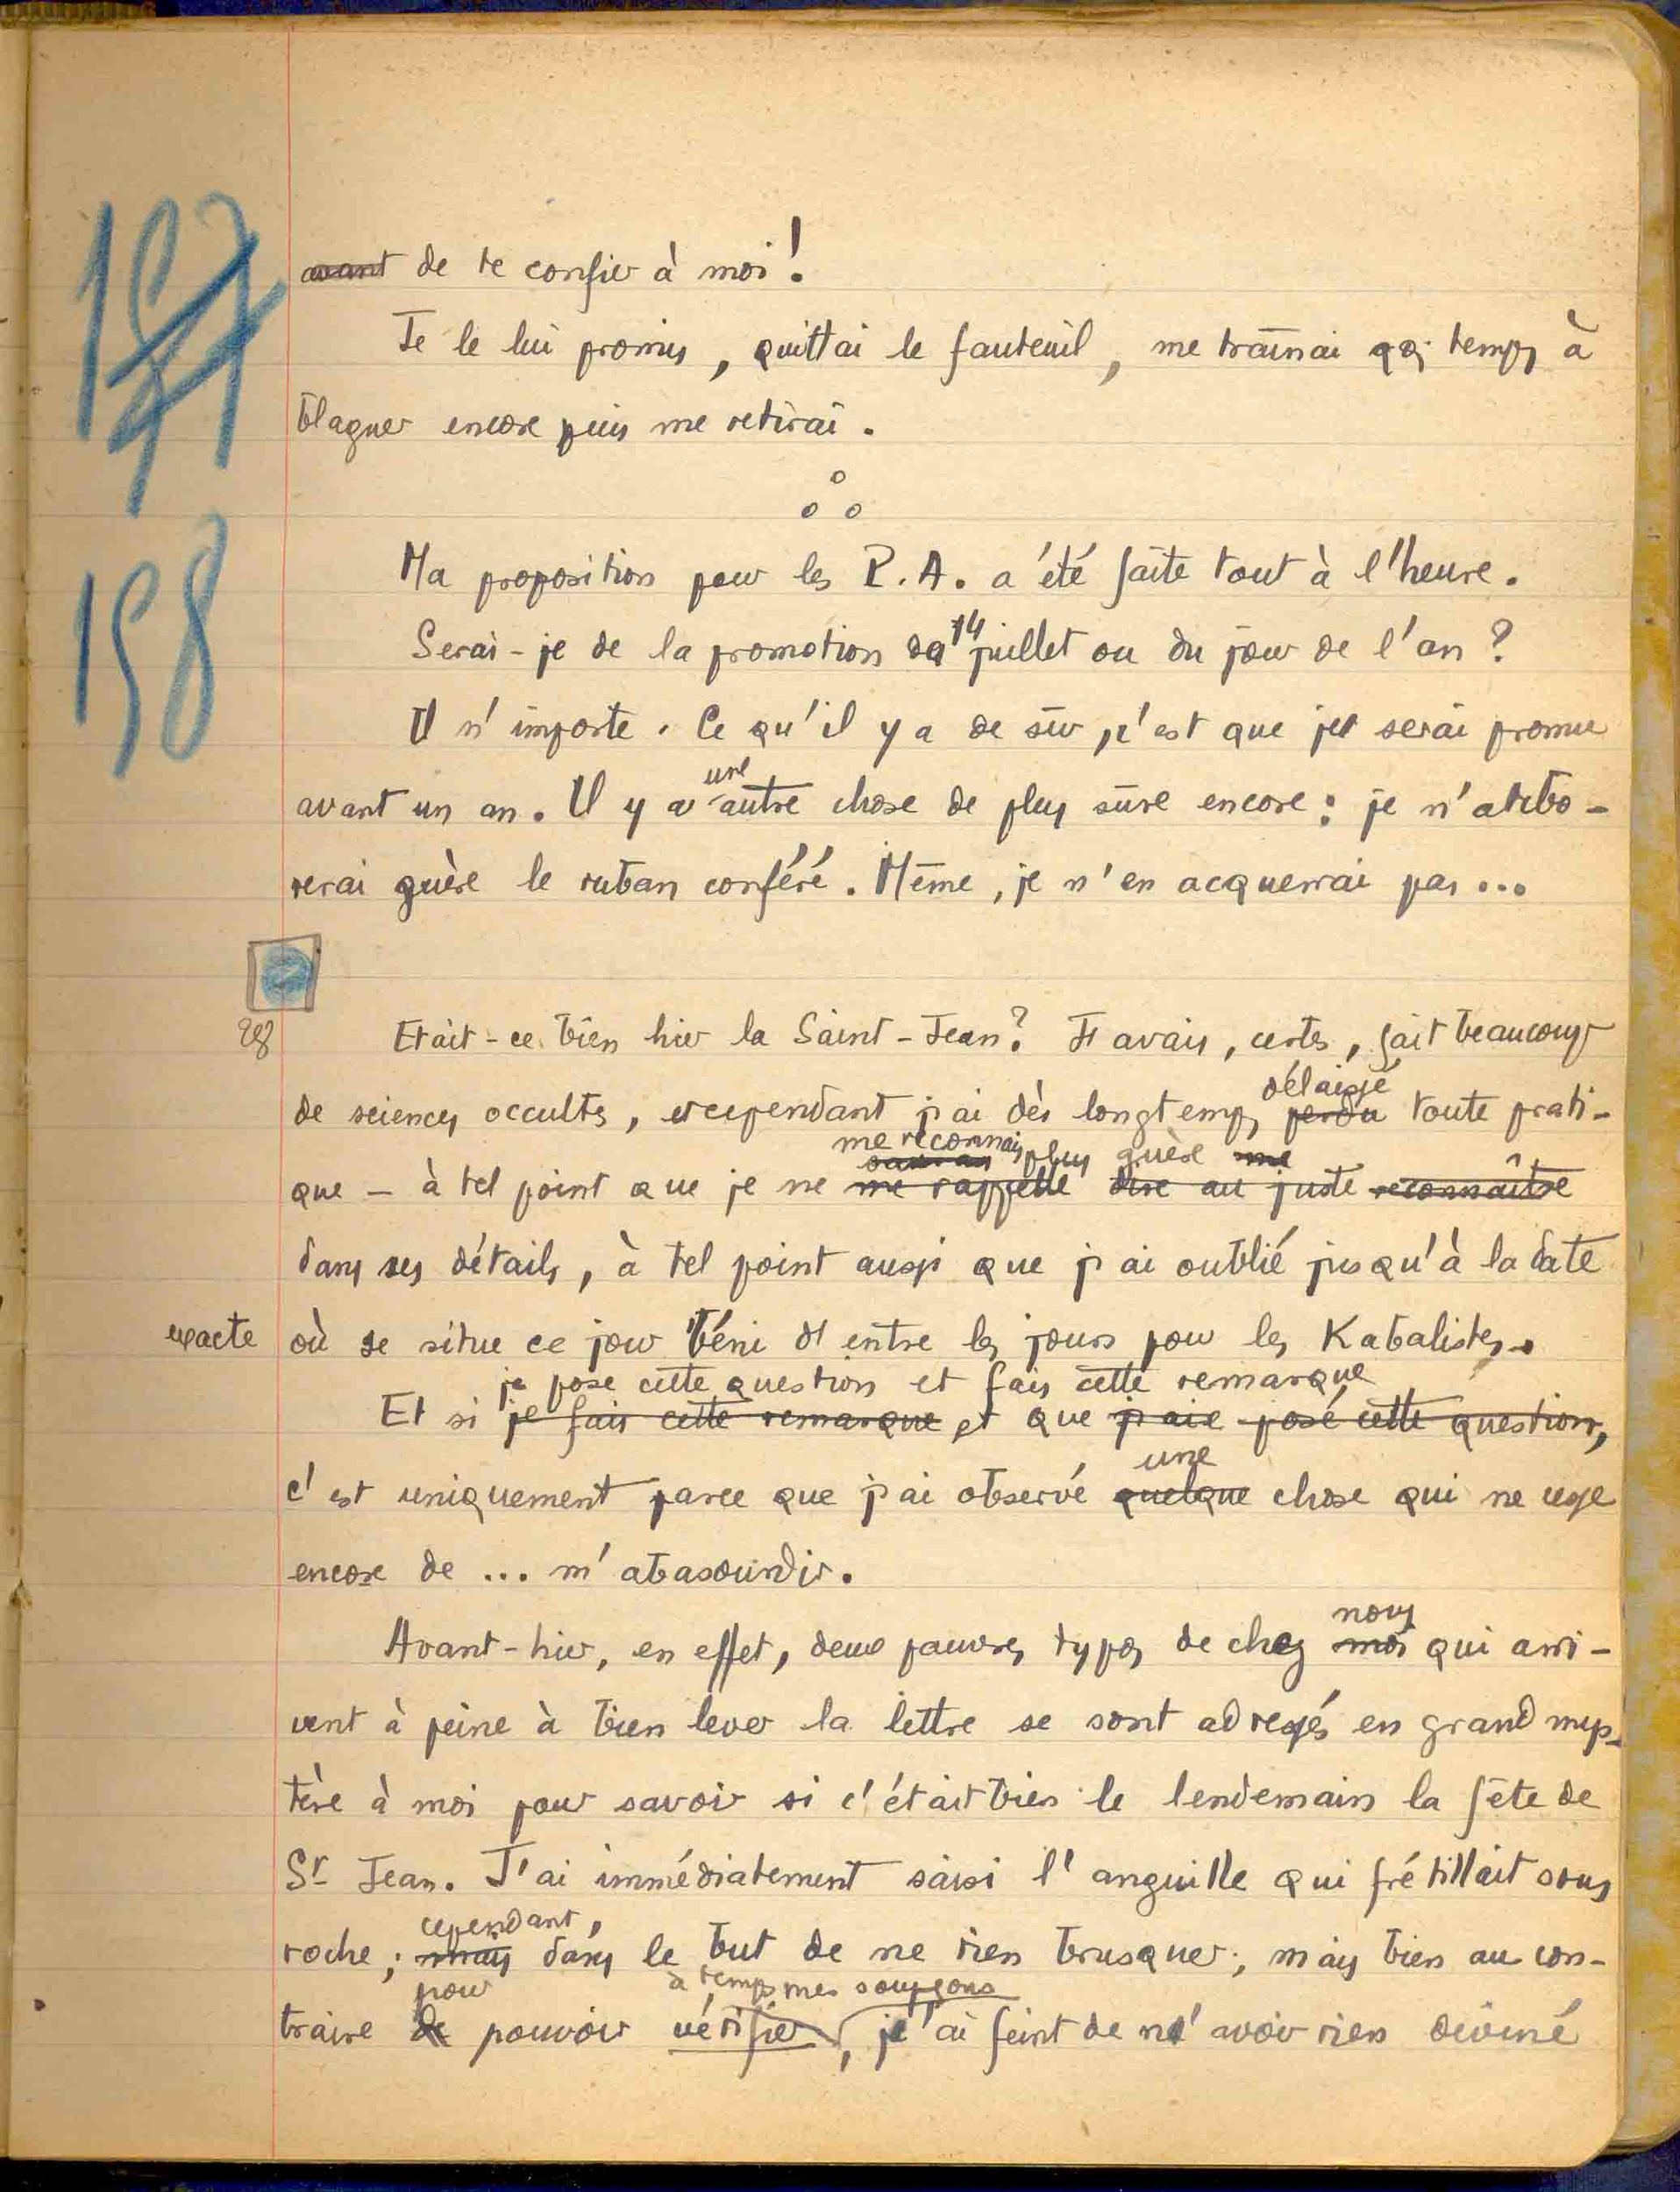 197
198
avant de te confier à moi !
Je le lui promis, quittai le fauteuil, me traînai qq; temps à
blaguer encore puis me retirai.
Ma proposition pour les P.A. a été faite tout à l'heure.
Serai-je de la promotion du 14 juillet ou du jour de l'an ?
Il n'importe. Ce qu'il y a de sûr, c'est que je serai promu
avant un an. Il y a une autre chose de plus sûre encore : je n'arbo-
rerai guère le ruban conféré. Même, je n'en acquerrai pas...
Etait-ce bien hier la Saint-Jean ? J'avais, certes, fait beaucoup
de sciences occultes, cependant j'ai dès longtemps perdu délaissé toute prati-
que – à tel point que je ne me rappelle me reconnais plus guère me dire au juste reconnaître
dans ses détails, à tel point aussi que j'ai oublié jusqu'à la date
exacte où se situe ce jour béni d'entre les jours pour les Kabalistes.
je pose cette question et fais cette remarque
Et si je fais cette remarque et que j'aie posé cette question,
c'est uniquement parce que j'ai observé quelque une chose qui ne cesse
encore de ... m'abasourdir.
Avant-hier, en effet, deux pauvres types de chez moi nous qui arri-
vent à peine à bien lever la lettre se sont adressés en grand mys-
tère à moi pour savoir si c'était bien le lendemain la fête de
St Jean. J'ai immédiatement saisi l'anguille qui frétillait sous
roche ; mais cependant, dans le but de ne rien brusquer ; mais bien au con-
traire de pour pouvoir vérifier à temps mes soupçons, j'ai feint de n'avoir rien deviné